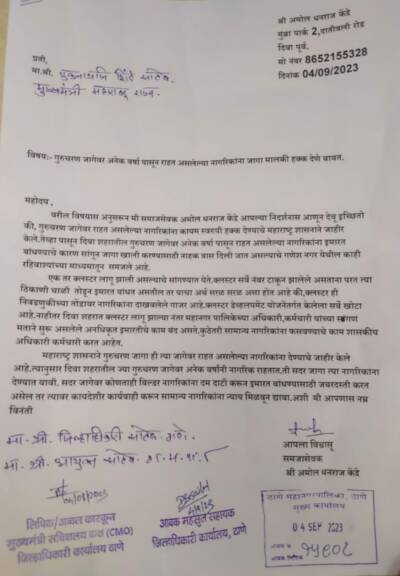 श्री अमोल धनराज केंद्रे
मुंब्रा पार्क 2,दातीवली रोड
दिवा पूर्व.
मो नंबर 8652155328
दिनांक 04/09/2023
प्रती,
मा.श्री. एकनाथजी शिंदे साहेब.
मुख्यमंत्री महाराष्ट्र राज्य.
विषयः- गुरुचरण जागेवर अनेक वर्षा पासून राहत असलेल्या नागरिकांना जागा मालकी हक्क देणे बाबत.
महोदय,
वरील विषयास अनुसरून मी समाजसेवक अमोल धनराज केंद्रे आपल्या निदर्शनास आणून देवु इच्छितो
की, गुरुचरण जागेवर राहत असलेल्या नागरिकांना कायम स्वरुपी हक्क देण्याचे महाराष्ट्र शासनाने जाहीर
केले.तेव्हा पासून दिवा शहरातील गुरुचरण जागेवर अनेक वर्षा पासून राहत असलेल्या नागरिकांना इमारत
बांधण्याचे कारण सांगून जागा खाली करण्यासाठी नाहक त्रास दिली जात असल्याचे गणेश नगर येथील काही
रहिवाश्यांच्या माध्यमातून समजले आहे.
एक तर क्लस्टर लागु झाली असल्याचे सांगण्यात येते.क्लस्टर सर्वे नंबर टाकून झालेले असताना परत त्या
ठिकाणी चाळी तोडून इमारत बांधत असतील तर याचा अर्थ सरळ सरळ असा होत आहे की,क्लस्टर ही
निवडणुकीच्या तोंडावर नागरिकांना दाखवलेले गाजर आहे.क्लस्टर डेव्हलपमेंट योजनेतर्गत केलेला सर्वे खोटा
आहे.नाहीतर दिवा शहरात क्लस्टर लागु झाल्या नंतर महानगर पालिकेच्या अधिकारी,कर्मचारी यांच्या संगण
मताने सुरू असलेले अनधिकृत इमारतीचे काम बंद असते.कुठेतरी सामान्य नागरिकांना फसवण्याचे काम शासकीय
अधिकारी कर्मचारी करत आहेत.
महाराष्ट्र शासनाने गुरुचरण जागा ही त्या जागेवर राहत असलेल्या नागरिकांना देण्याचे जाहीर केले
आहे.त्यानुसार दिवा शहरातील ज्या गुरुचरण जागेवर अनेक वर्षांनी नागरिक राहतात.ती सदर जागा त्या नागरिकांना
देण्यात यावी. सदर जागेवर कोणताही बिल्डर नागरिकांना दम दाटी करून इमारत बांधण्यासाठी जबरदस्ती करत
असेल तर त्यावर कायदेशीर कार्यवाही करून सामान्य नागरिकांना न्याय मिळवून द्यावा.अशी मी आपणास नम्र
विनंती
मा. श्री. जिल्हाधिकारी साहेब ठाणे.
मा. श्री. आयुक्त साहेब ठा.म.पा.
आपला विश्वासू
समजासेवक
श्री अमोल धनराज केंद्रे
लिपिक/अव्वल कारकून
मुख्यमंत्री सचिवालय कक्ष (CMO)
जिल्हाधिकारी कार्यालय ठाणे
4/9/23
आवक महसुल सहायक
जिल्हाधिकारी कार्यालय, ठाणे
ठाणे महानगरपालिका, ठाणे
मुख्य कार्यालय
04 SEP 2023